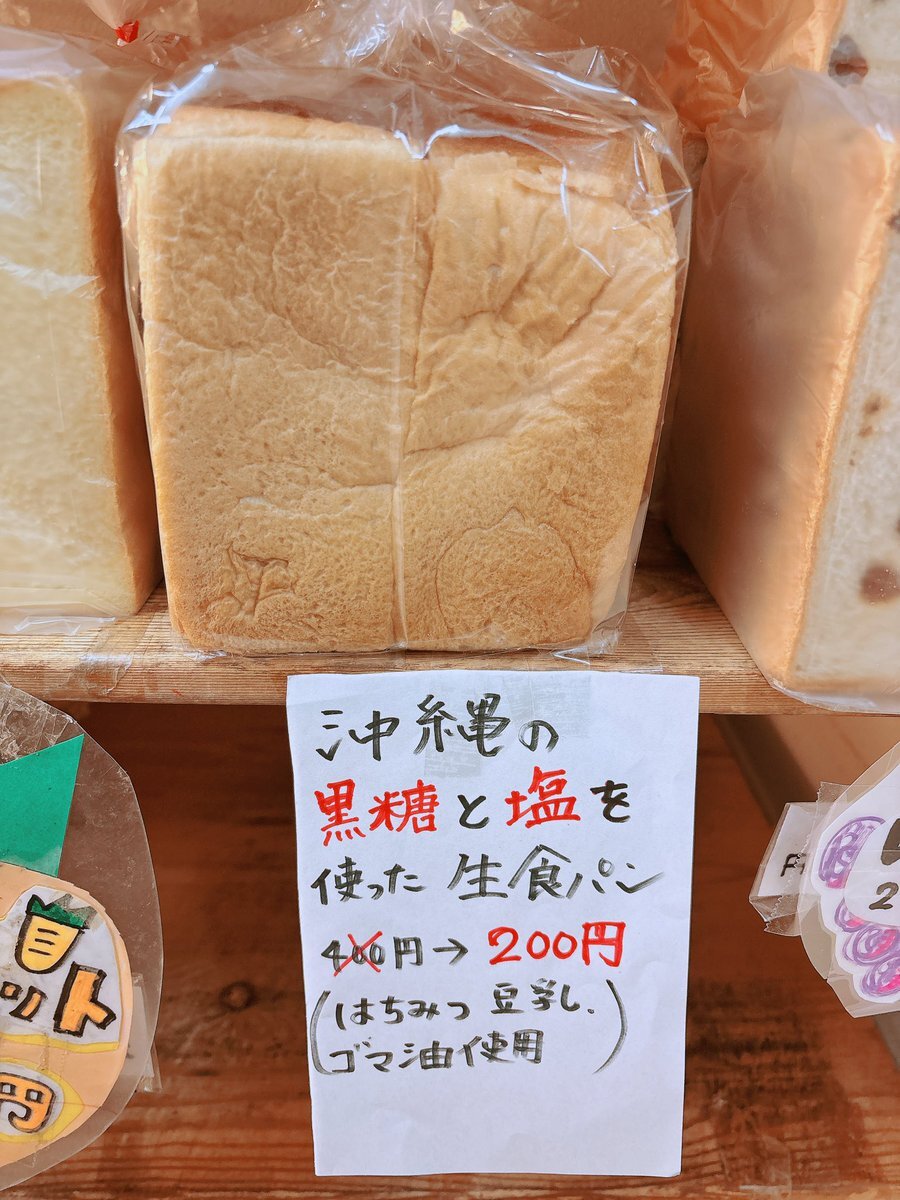 沖縄の
黒糖と塩を
使った 生食パン
400円→200円
(はちみつ 豆乳し、
ゴマ油使用)
ット
円
2